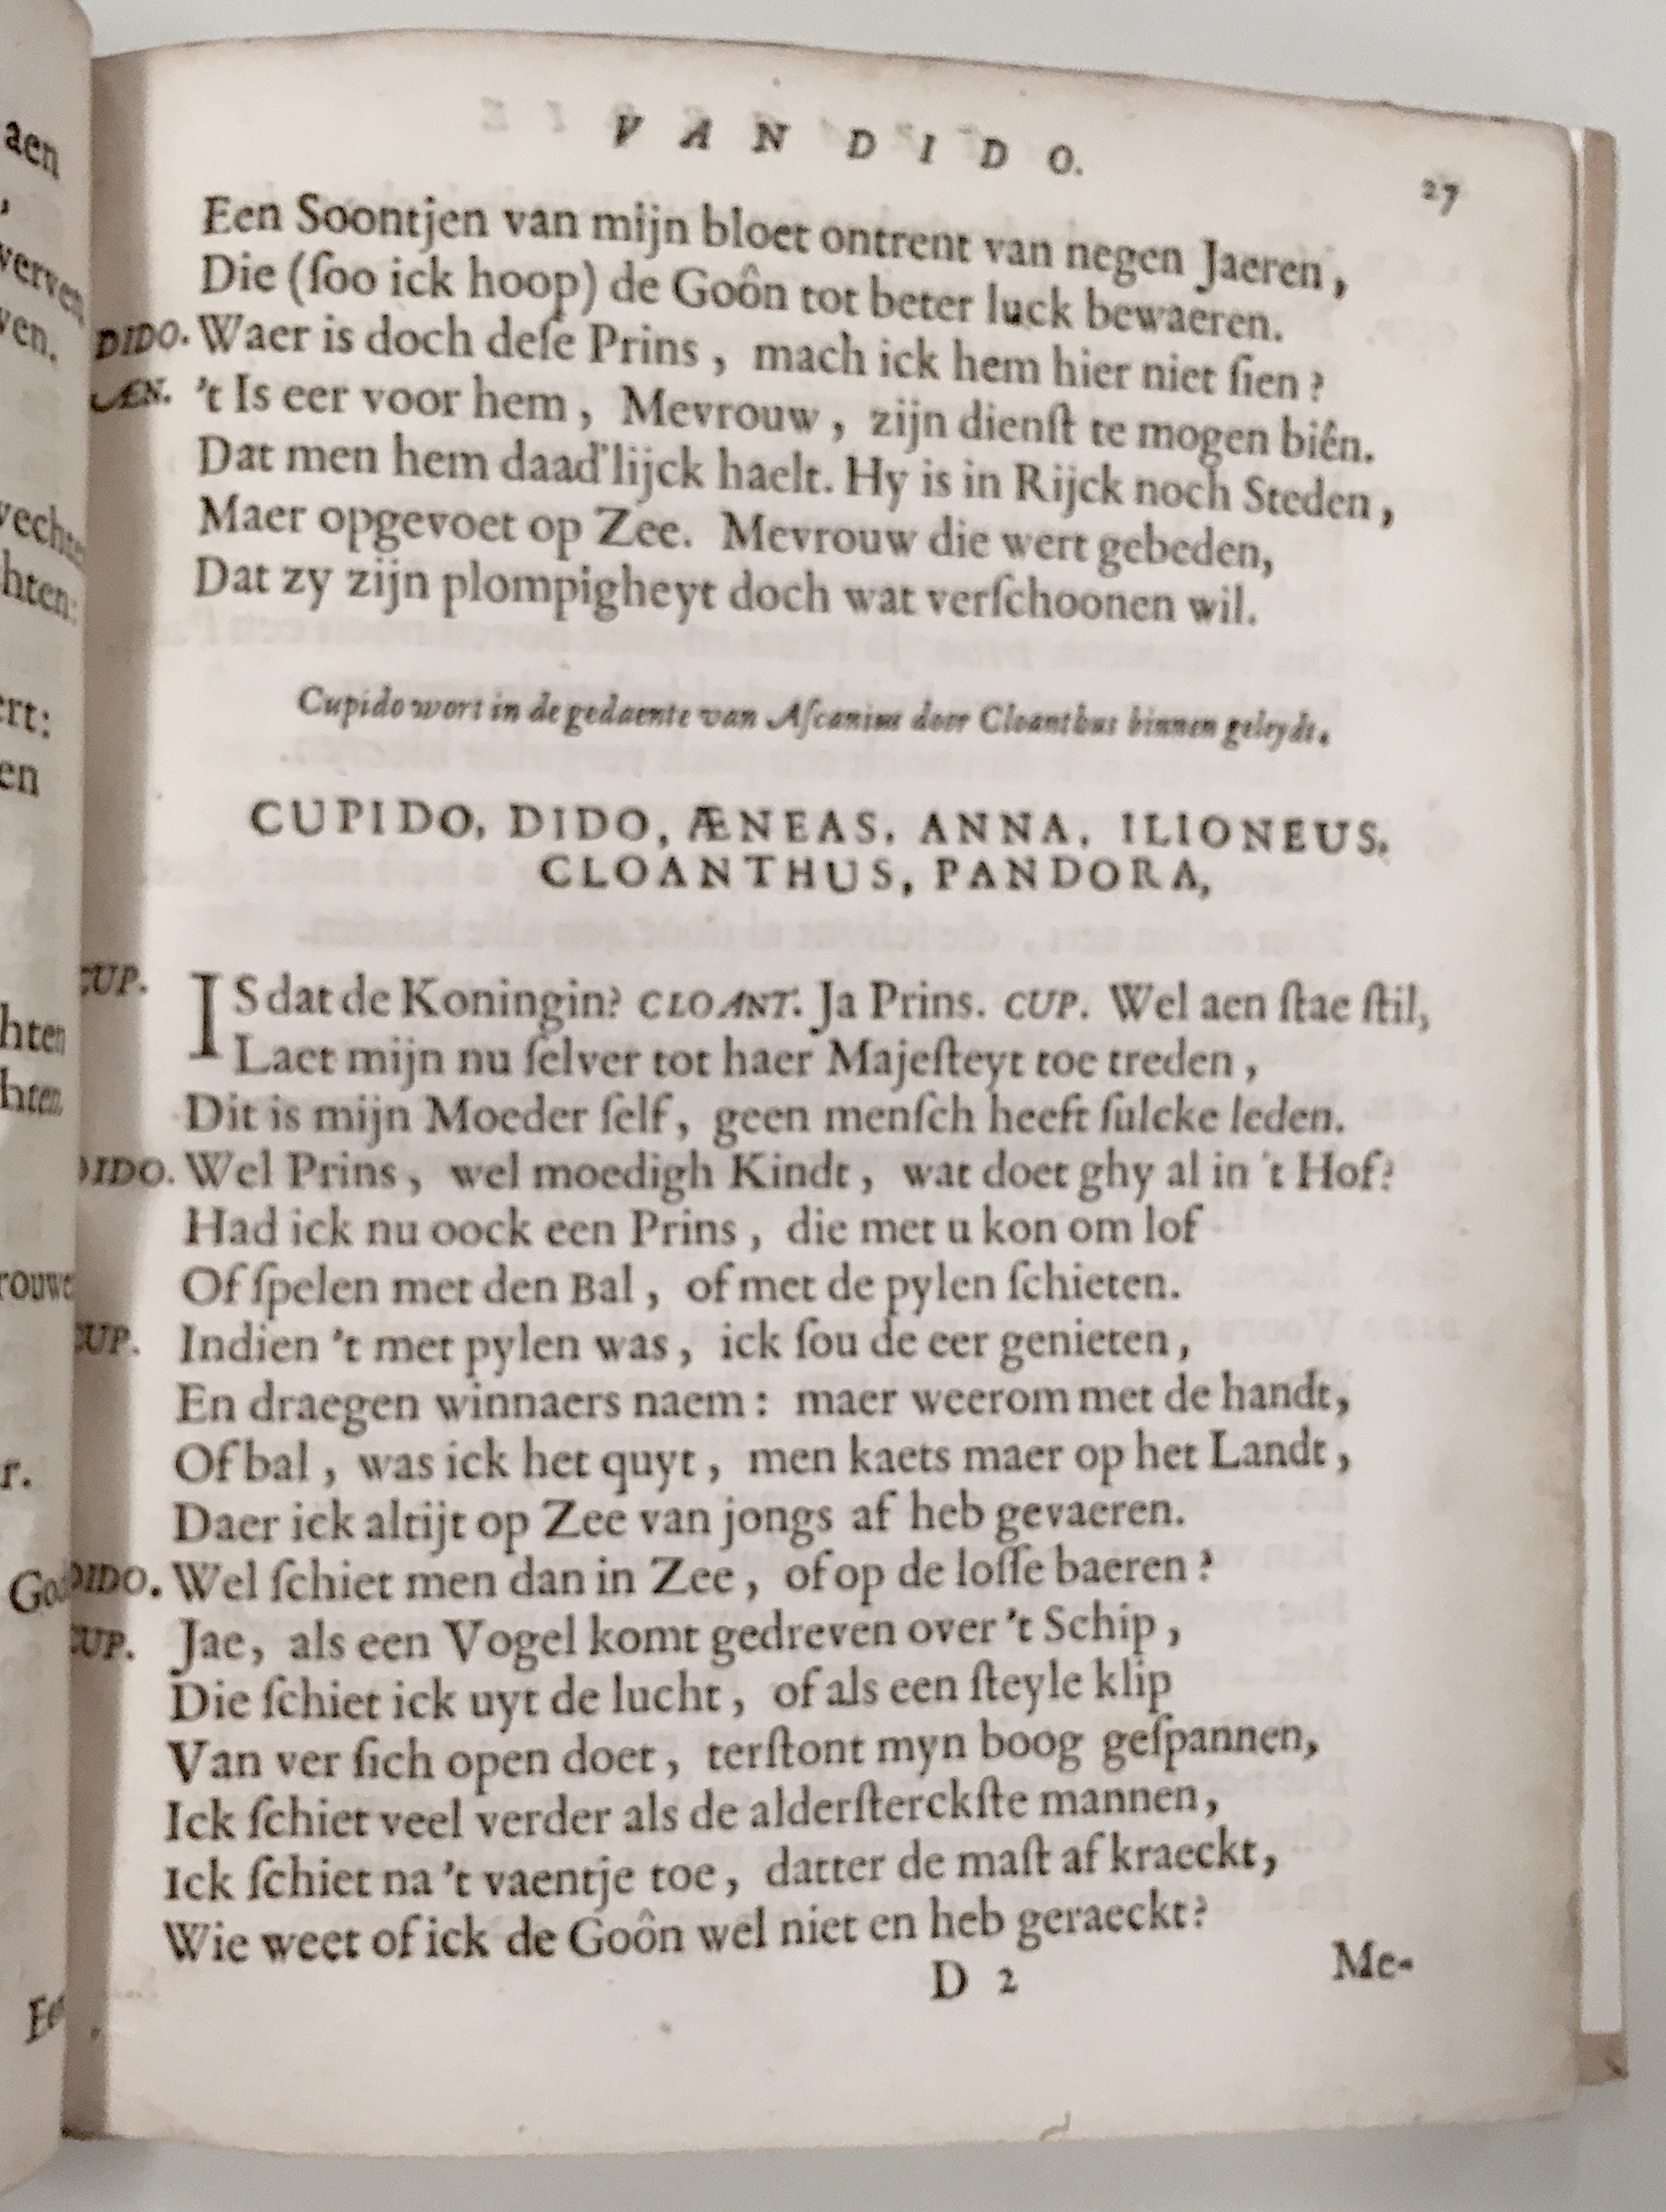 VAN DIDO.
27
Een Soontjen van mijn bloet ontrent van negen Jaeren,
Die (ſoo ick hoop) de Goôn tot beter luck bewaeren.
DIDO. Waer is doch deſe Prins, mach ick hem hier niet ſien?
ÆN. 't Is eer voor hem, Mevrouw, zijn dienſt te mogen biên.
Dat men hem daad'lijck haelt. Hy is in Rijck noch Steden,
Maer opgevoet op Zee. Mevrouw die wert gebeden,
Dat zy zijn plompigheyt doch wat verſchoonen wil.
Cupido wort in de gedaente van Aſcanius door Cloanthus binnen geleydt.
CUPIDO, DIDO, ÆNEAS, ANNA, ILIONEUS,
CLOANTHUS, PANDORA,
CUP. IS dat de Koningin? CLOANT. Ja Prins. CUP. Wel aen ſtae ſtil,
Laet mijn nu ſelver tot haer Majeſteyt toe treden,
Dit is mijn Moeder ſelf, geen menſch heeft ſulcke leden.
DIDO. Wel Prins, wel moedigh Kindt, wat doet ghy al in 't Hof?
Had ick nu oock een Prins, die met u kon om lof
Of ſpelen met den Bal, of met de pylen ſchieten.
CUP. Indien 't met pylen was, ick ſou de eer genieten,
En draegen winnaers naem: maer weerom met de handt,
Of bal, was ick het quyt, men kaets maer op het Landt,
Daer ick altijt op Zee van jongs af heb gevaeren.
DIDO. Wel ſchiet men dan in Zee, of op de loſſe baeren?
CUP. Jae, als een Vogel komt gedreven over 't Schip,
Die ſchiet ick uyt de lucht, of als een ſteyle klip
Van ver ſich open doet, terſtont myn boog geſpannen,
Ick ſchiet veel verder als de alderſterckſte mannen,
Ick ſchiet na 't vaentje toe, datter de maſt af kraeckt,
Wie weet of ick de Goôn wel niet en heb geraeckt?
D 2
Me-